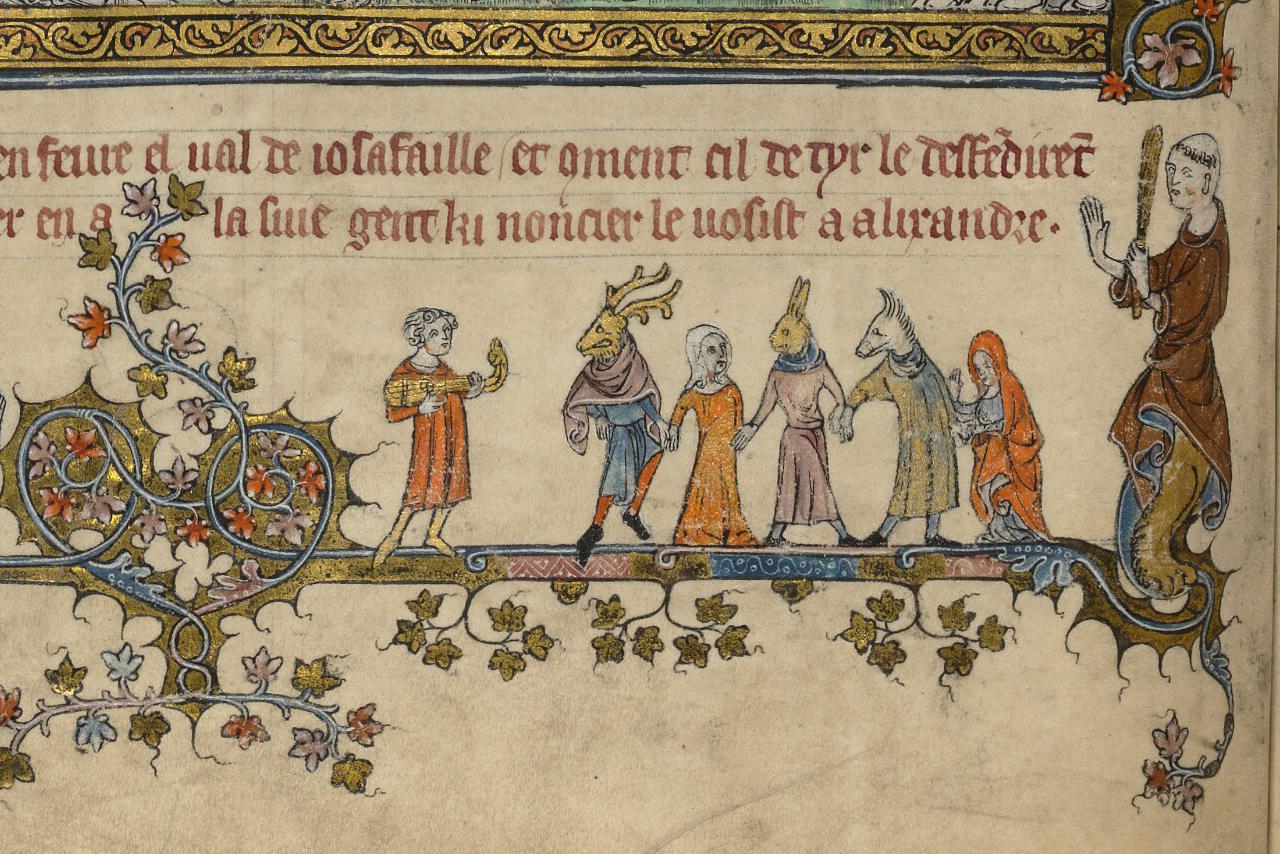 en feure el ual de iosafaille et qment cil de tyr le deffēdirēt
er en a la siue gent ki nōcier le uosist a alixandre.